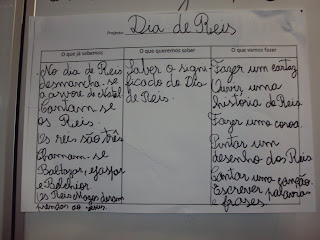 Projecto: Dia de Reis
O que já sabemos
No dia de Reis
desmancha-se
a árvore de Natal
Cantam-se
os Reis.
Os reis são três
Chamam-se
Baltazar, Gaspar
e Belchior
Os Reis Magos deram
prendas ao Jesus.
O que queremos saber
Saber o signi-
ficado do Dia
de Reis.
O que vamos fazer
Fazer um cartaz
Ouvir uma
história de Reis
Fazer uma coroa.
Pintar um
desenho dos Reis
Cantar uma canção.
Escrever palavras
e frases.